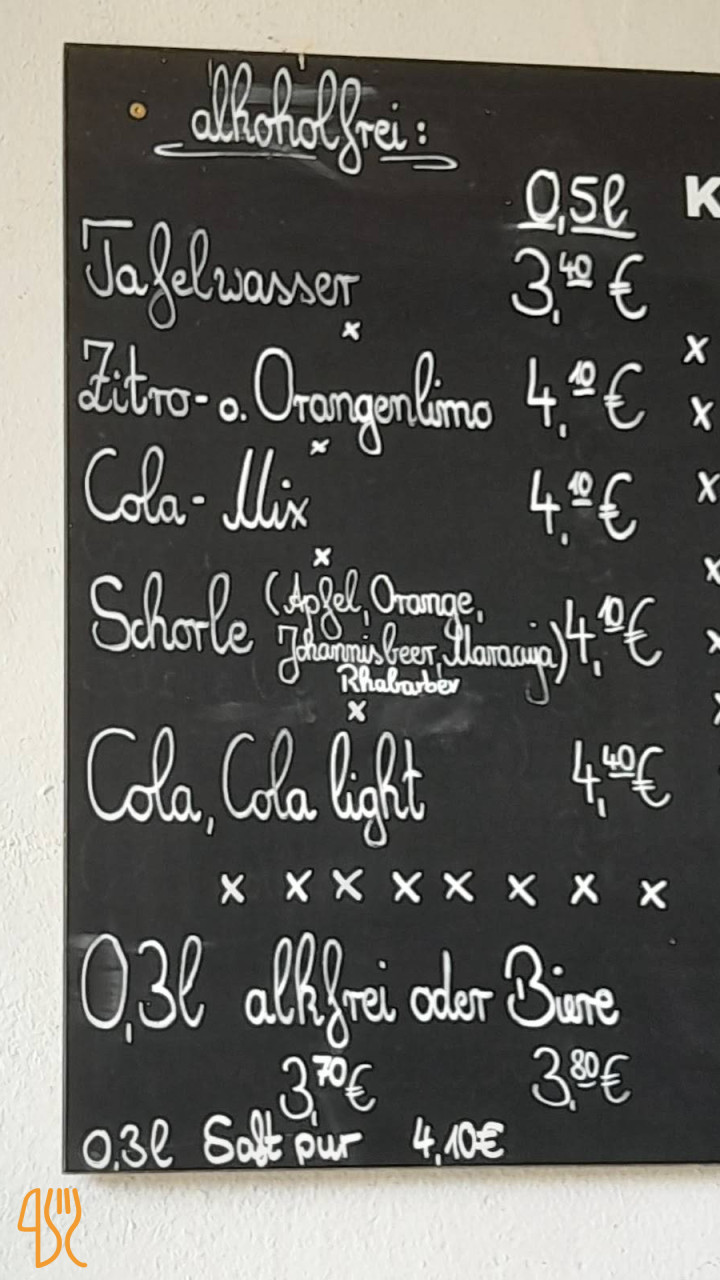 alkoholfrei:
0,5l
K
Tafelwasser 3,40 €
x
Zitro- o. Orangenlimo 4,10 €
x
Cola-Mix 4,10 €
x
Schorle (Apfel, Orange, 4,10 €
Johannisbeer, Maracuja)
Rhabarber
x
Cola, Cola light 4,40 €
x x x x x x x x
0,3l alkfrei oder Biere
3,70 € 3,80 €
0,3l Saft pur 4,10€